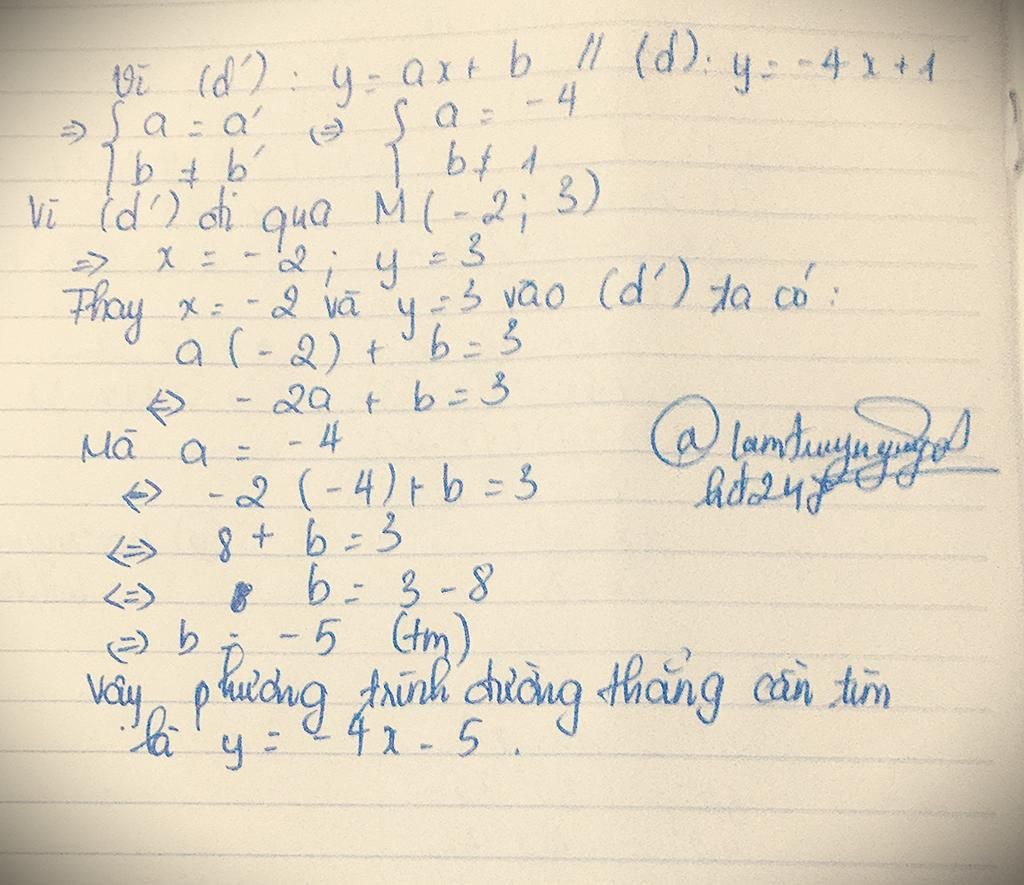 Vì (d') : y = ax + b // (d): y = -4x + 1
=> { a = a' <=> { a = -4
b ≠ b' b ≠ 1
Vì (d') đi qua M(-2; 3)
=> x = -2; y = 3
Thay x = -2 và y = 3 vào (d') ta có:
a(-2) + b = 3
<=> -2a + b = 3
Mà a = -4
<=> -2(-4) + b = 3
<=> 8 + b = 3
<=> b = 3 - 8
<=> b = -5 (tm)
Vậy phương trình đường thẳng cần tìm
là y = -4x - 5.